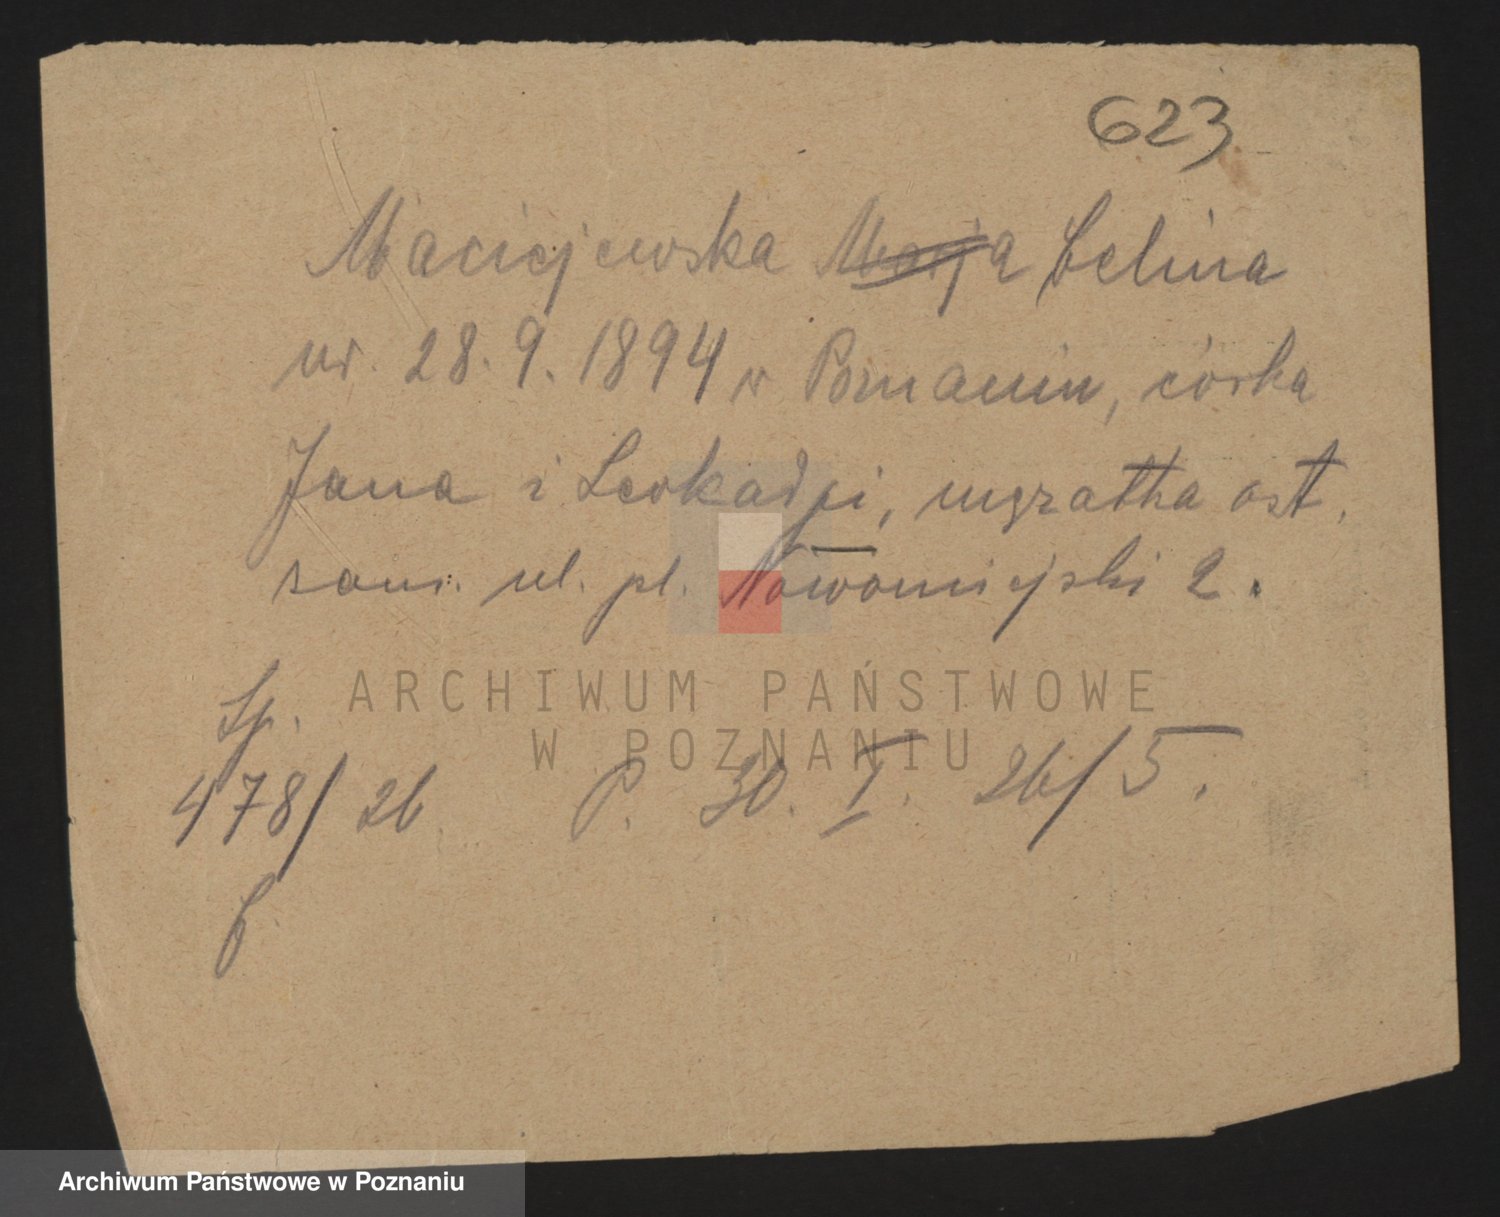 623
Maciejewska Marja Celina
ur. 28.9.1894 w Poznaniu, córka
Jana i Leokadji, mężatka ost.
zam. ul. pl. Nowomiejski 2.
Sp.
478/26 P. 30. I. 26/5.
ARCHIWUM PAŃSTWOWE
W POZNANIU
Archiwum Państwowe w Poznaniu